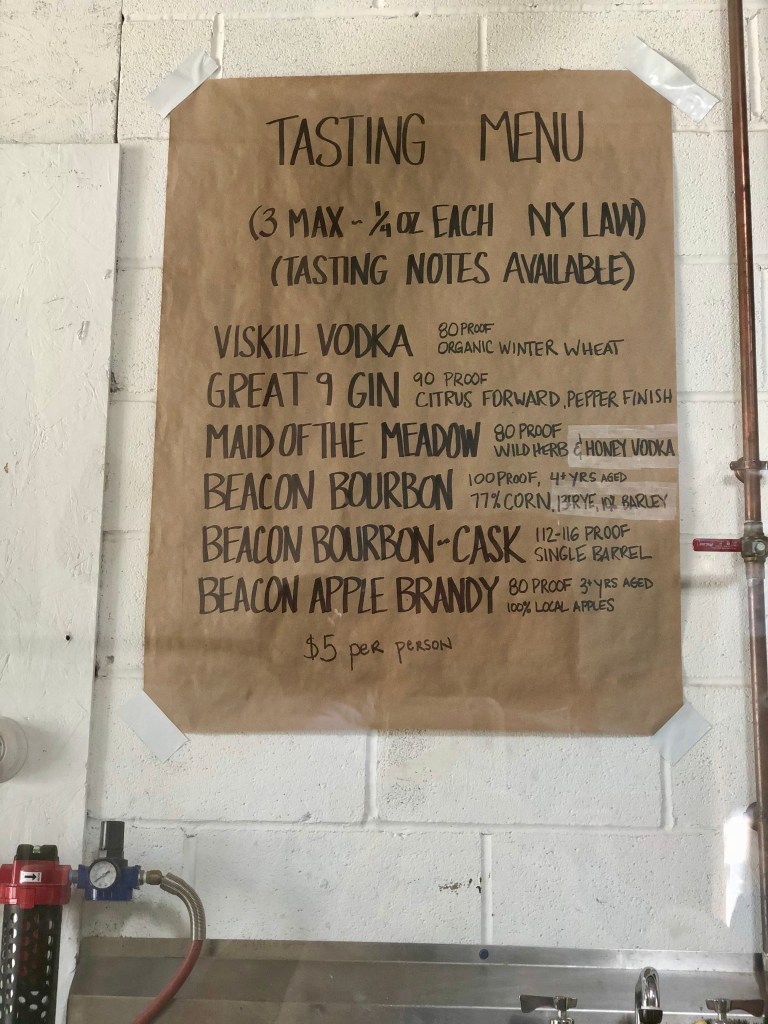 TASTING MENU
(3 MAX ~ 1/4 OZ EACH NY LAW)
(TASTING NOTES AVAILABLE)
VISKILL VODKA 80 PROOF
ORGANIC WINTER WHEAT
GREAT 9 GIN 90 PROOF
CITRUS FORWARD, PEPPER FINISH
MAID OF THE MEADOW 80 PROOF
WILD HERB & HONEY VODKA
BEACON BOURBON 100 PROOF, 4+ YRS AGED
77% CORN, 13% RYE, 10% BARLEY
BEACON BOURBON~CASK 112-116 PROOF
SINGLE BARREL
BEACON APPLE BRANDY 80 PROOF 3+ YRS AGED
100% LOCAL APPLES
$5 per person